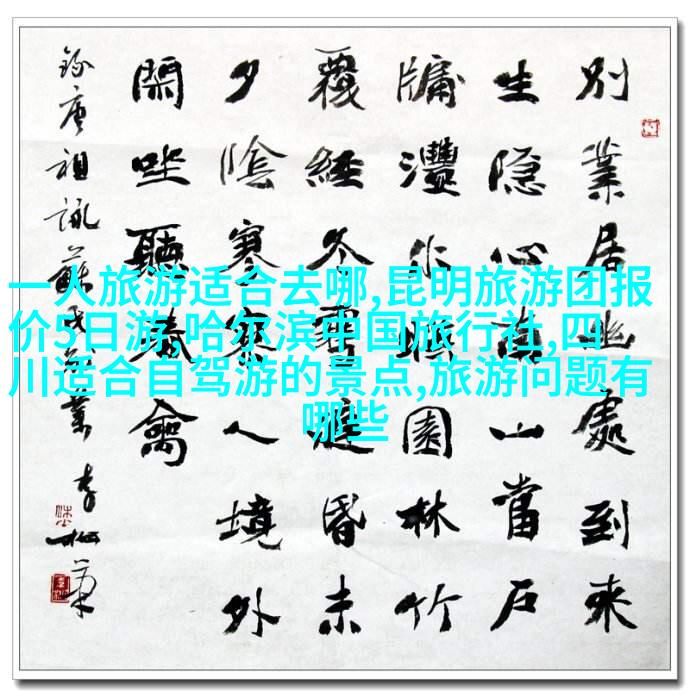 別業居幽處到來
生隐心南山當户
牖灃水映園林竹
覆經冬雪庭昏未
夕陰寥寥人境外
閑坐聽春禽
錄唐祖詠蘇氏別業
一人旅游适合去哪,昆明旅游团报
价5日游,哈尔滨中国旅行社,四
川适合自驾游的景点,旅游问题有
哪些